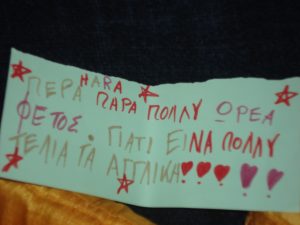 HARA
ΠΕΡΑ ΠΑΡΑ ΠΟΛΛΥ ΩΡΕΑ
ΦΕΤΟΣ. ΓΙΑΤΙ ΕΙΝΑ ΠΟΛΛΥ
ΤΕΛΙΑ ΤΑ ΑΓΓΛΙΚΑ!!!!!